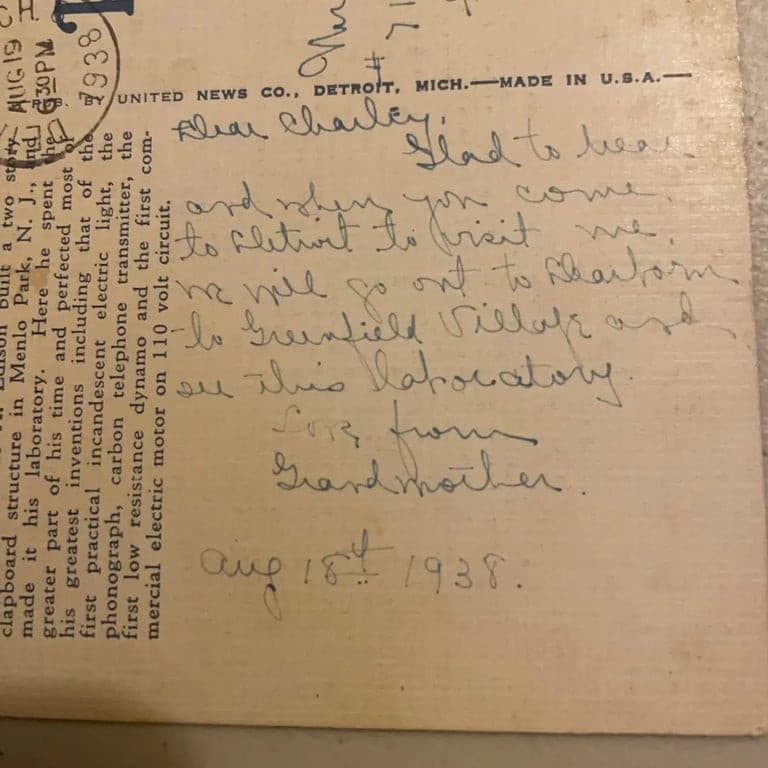 AUG 19
6 30 PM
1938
PUB. BY UNITED NEWS CO., DETROIT, MICH.—MADE IN U.S.A.—
Dear Charley,
Glad to hear
and when you come
to Detroit to visit me,
we will go out to Dearborn
to Greenfield Village and
see this laboratory.
Love from
Grandmother.
Aug 18th 1938.
Edison built a two story
clapboard structure in Menlo Park, N. J., and
made it his laboratory. Here he spent the
greater part of his time and perfected most of
his greatest inventions including that of the
first practical incandescent electric light, the
phonograph, carbon telephone transmitter, the
first low resistance dynamo and the first com-
mercial electric motor on 110 volt circuit.